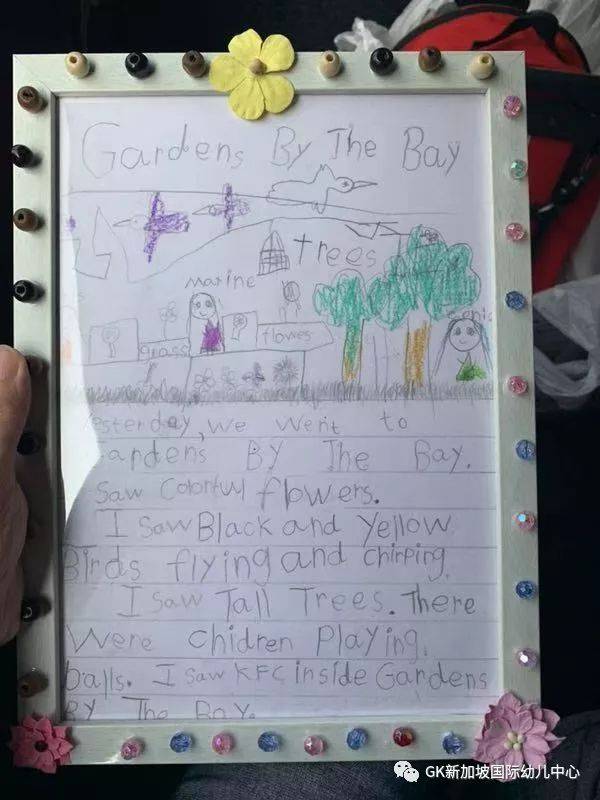 Gardens By The Bay
trees
marine
grass
flowes
esterday, we went to
ardens BY The Bay.
Saw Colorful flowers.
I Saw Black and yellow
Birds flying and chirping.
I Saw Tall Trees. There
Were chidren Playing.
balls. I Saw KFC inside Gardens
BY The Bay.
GK新加坡国际幼儿中心